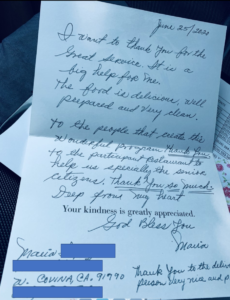 June 25/2020
I want to thank You for the
Great Service It is a
big help for me.
The food is delicious, well
prepared and Very clean.
To the people that create this
Wonderful Program Thank You
to the participant Restaurant to
help us specially the senior
citizens. Thank You so much
Deep from my heart
Your kindness is greatly appreciated.
God Bless You
Maria
Maria
W. COVINA, CA. 91790
Thank You to the deliv
person Very nice and p